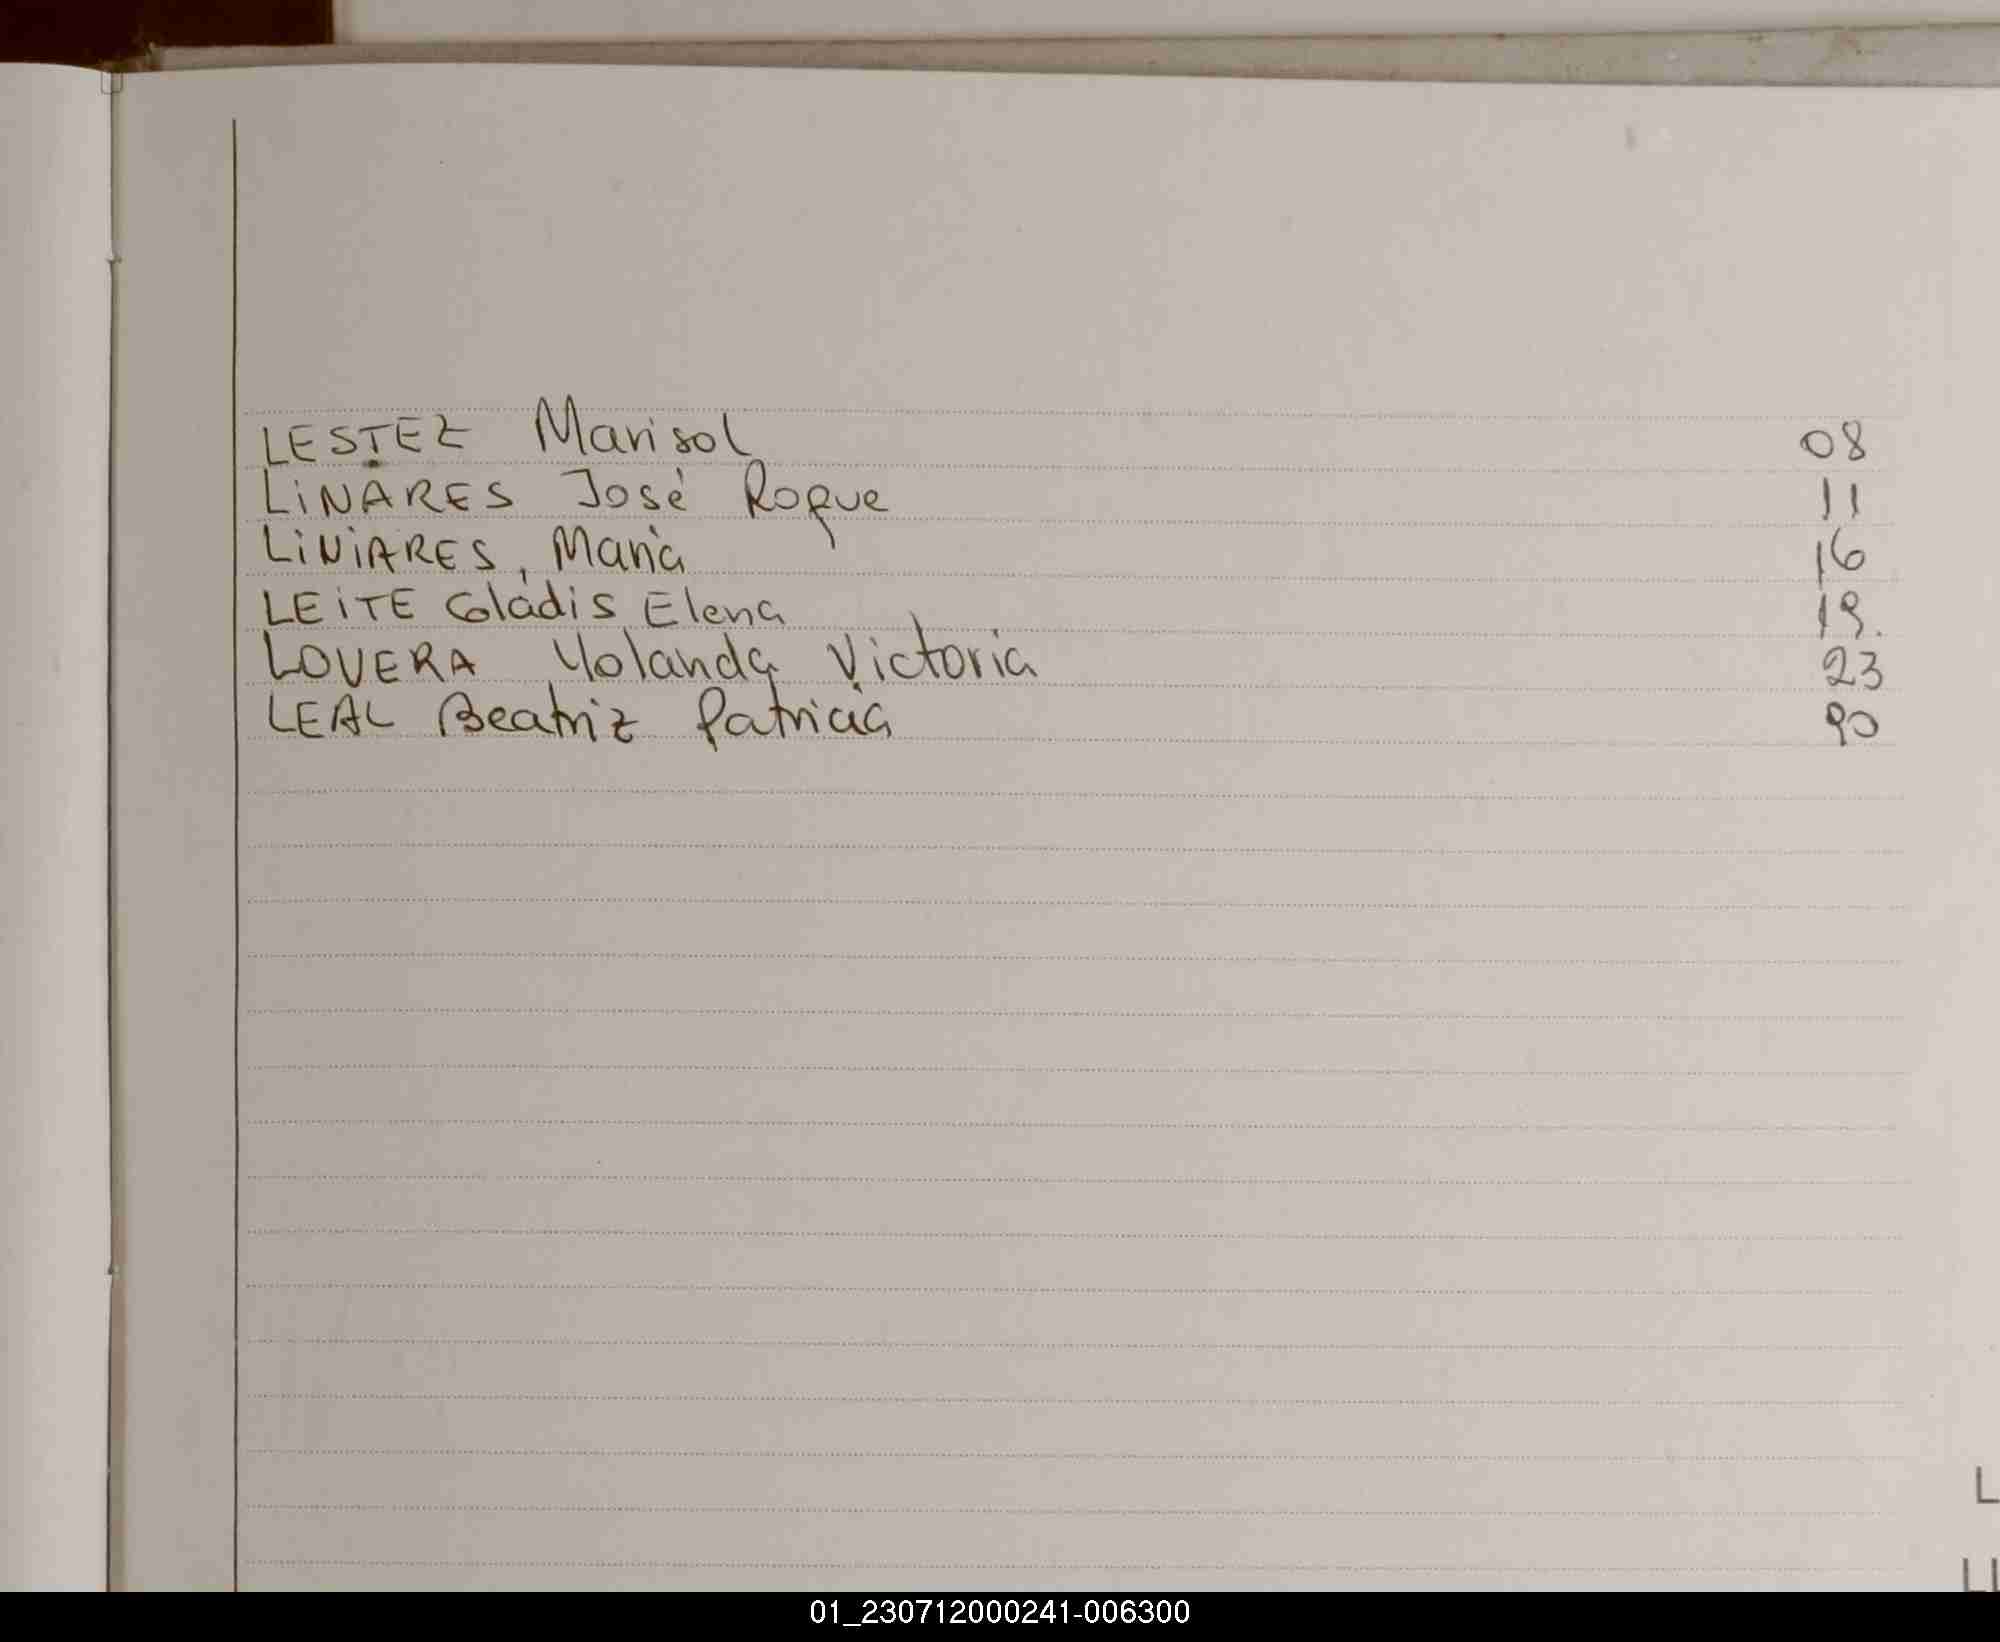 LESTEZ Marisol 08
LINARES José Roque 11
LINIARES, María 16
LEITE Gládis Elena 19.
LOVERA Yolanda Victoria 23
LEAL Beatriz Patricia 90
L
LL
01_230712000241-006300